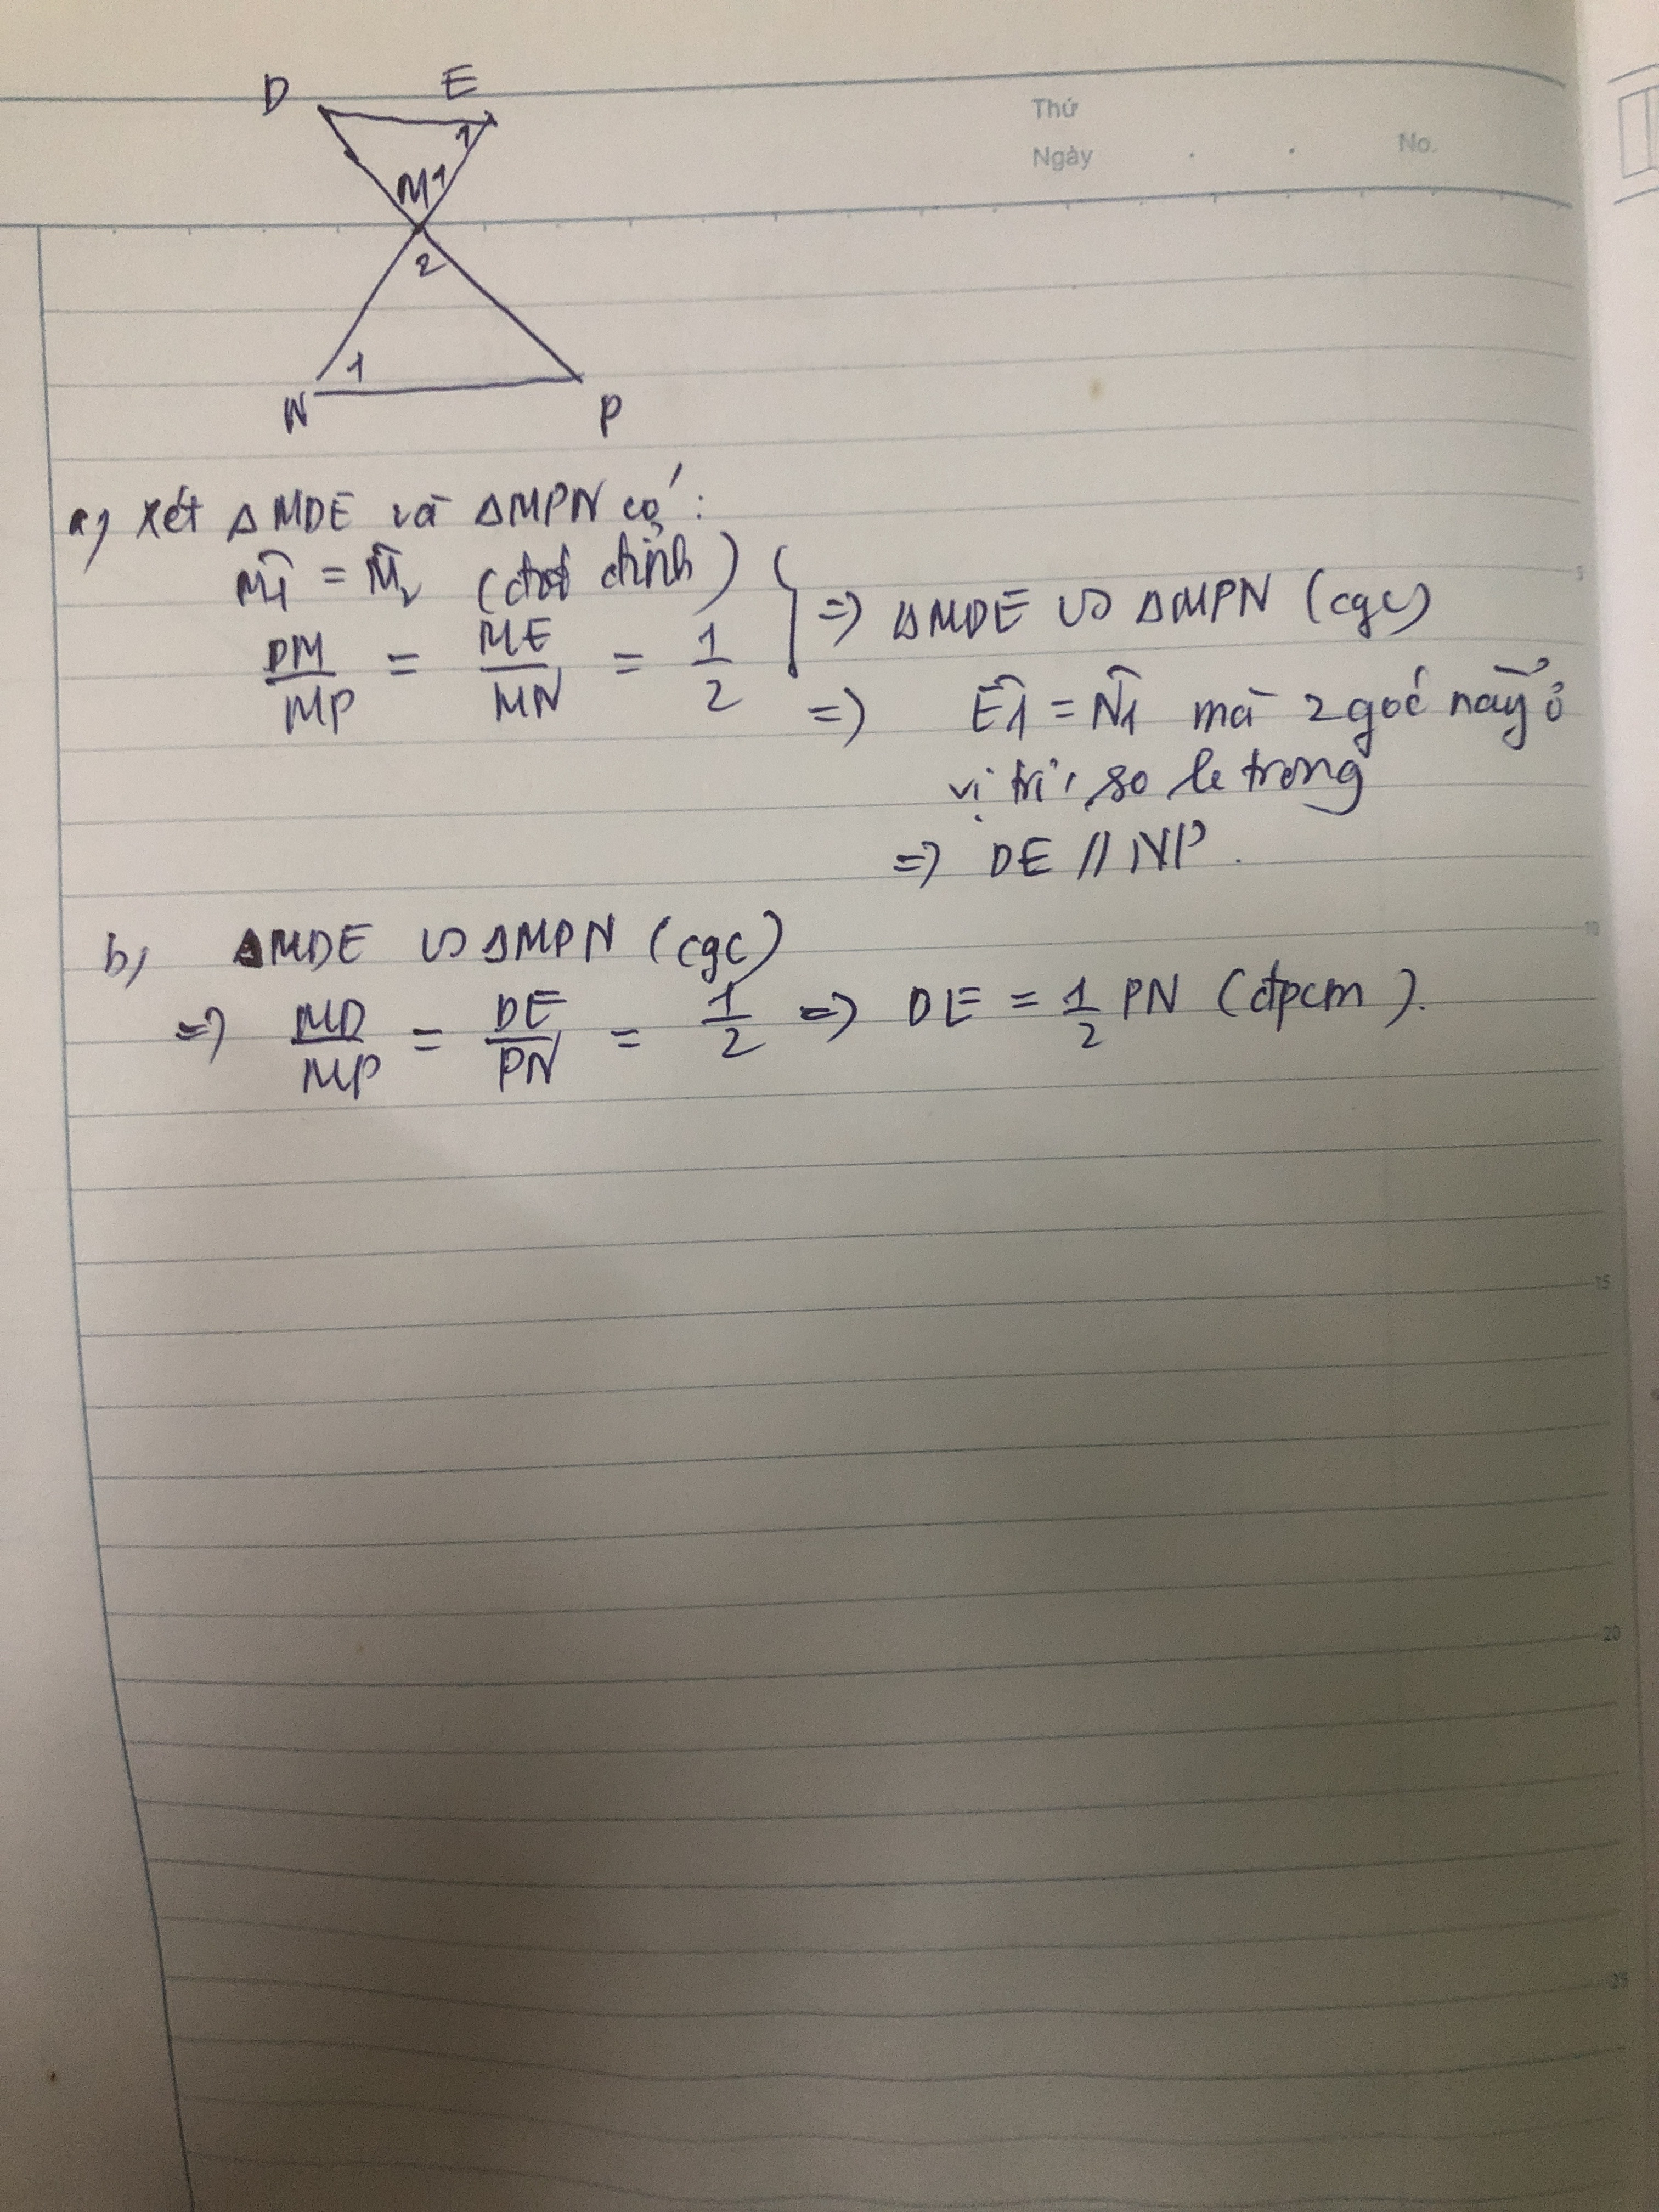 D E
Thứ
Ngày . . No.
1
M1
2
1
N P
a) Xét ΔMDE và ΔMPN có:
M̂1 = M̂2 (đối đỉnh)
DM/MP = ME/MN = 1/2
} => ΔMDE ∽ ΔMPN (cgc)
=> Ê1 = N̂1 mà 2 góc này ở
vị trí so le trong
=> DE // NP.
5
b, ΔMDE ∽ ΔMPN (cgc)
10
=> MD/MP = DE/PN = 1/2 => DE = 1/2 PN (đpcm).
15
20
25